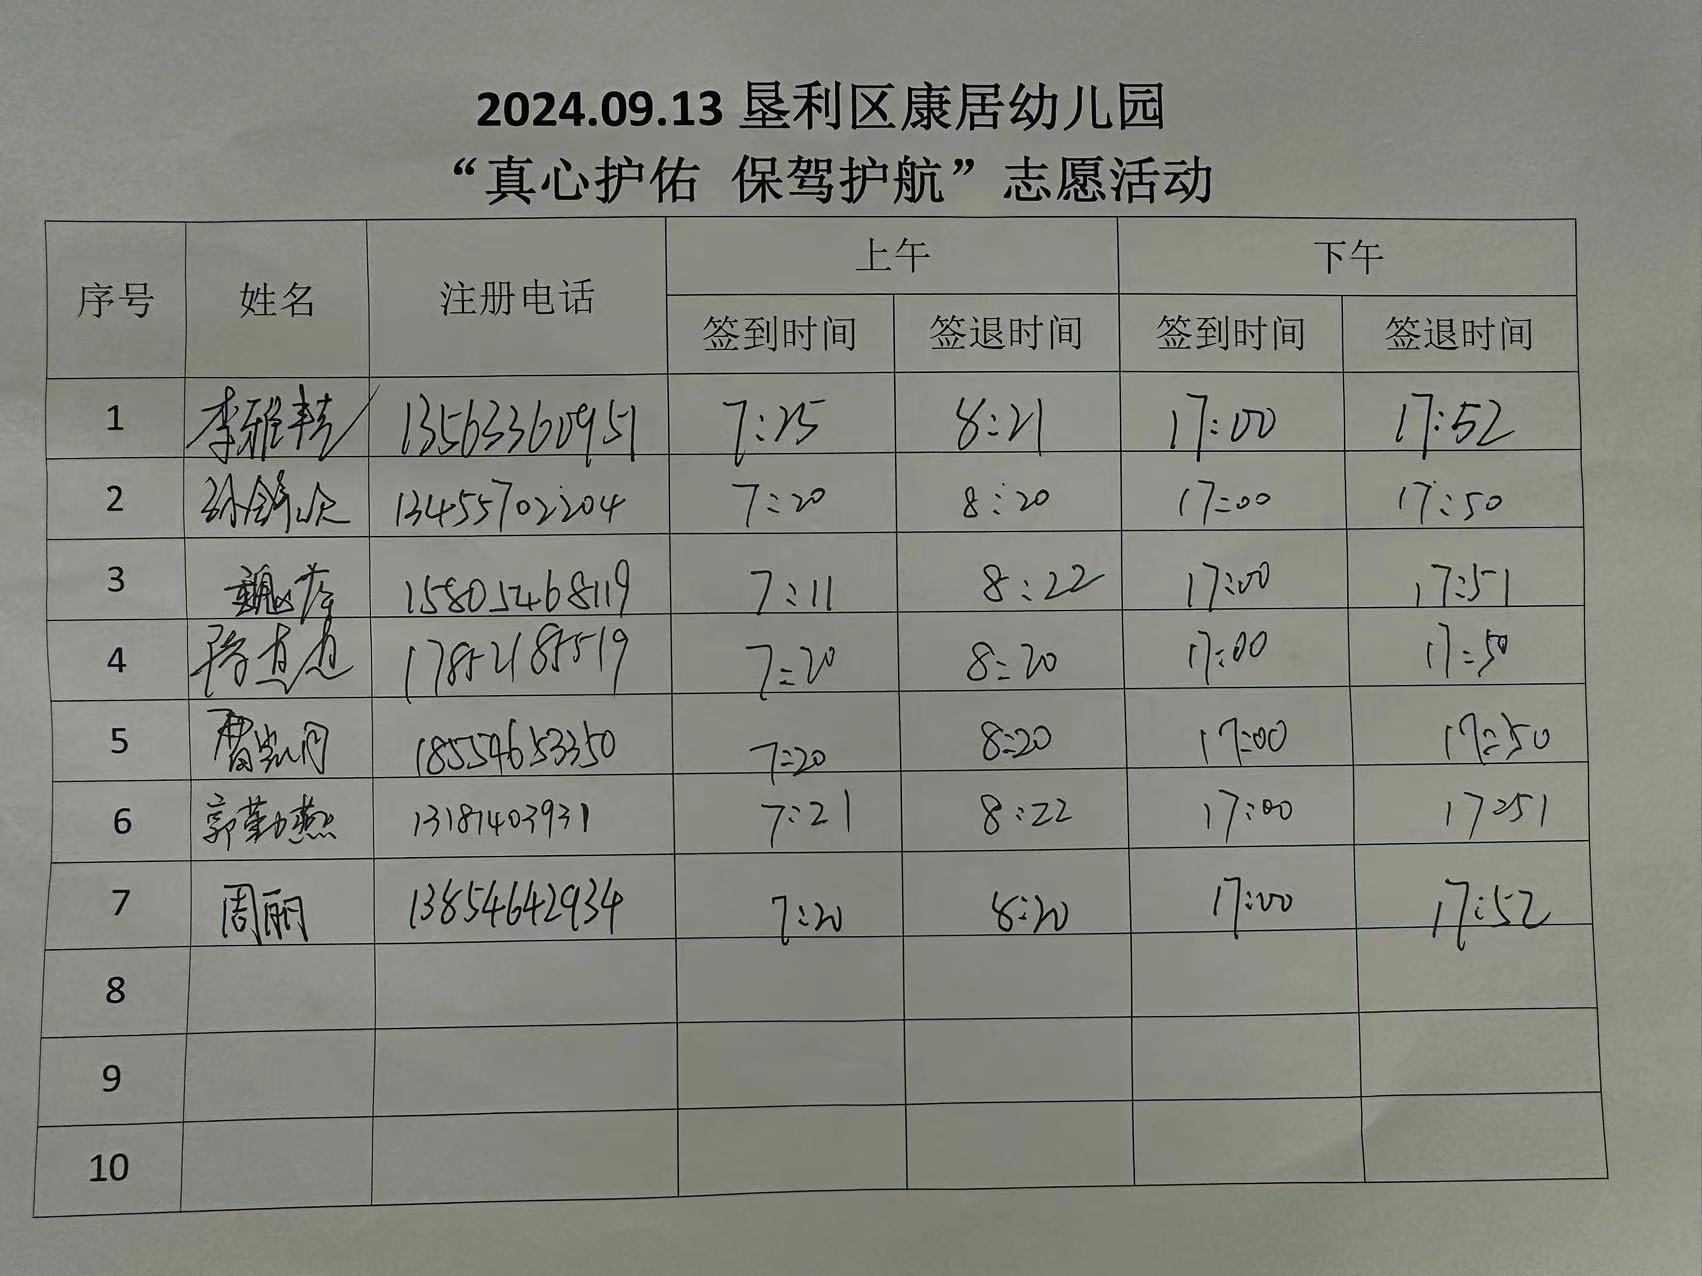 2024.09.13 垦利区康居幼儿园
“真心护佑 保驾护航”志愿活动
序号 姓名 注册电话 上午 下午
签到时间 签退时间 签到时间 签退时间
1 李雅 13563360951 7:25 8:21 17:00 17:52
2 孙 13455702204 7:20 8:20 17:00 17:50
3 魏 15805468119 7:11 8:22 17:00 17:51
4 17852185519 7:20 8:20 17:00 17:50
5 18554653350 7:20 8:20 17:00 17:50
6 郭勤燕 13181403931 7:21 8:22 17:00 17:51
7 周丽 13854642934 7:20 8:20 17:00 17:52
8
9
10